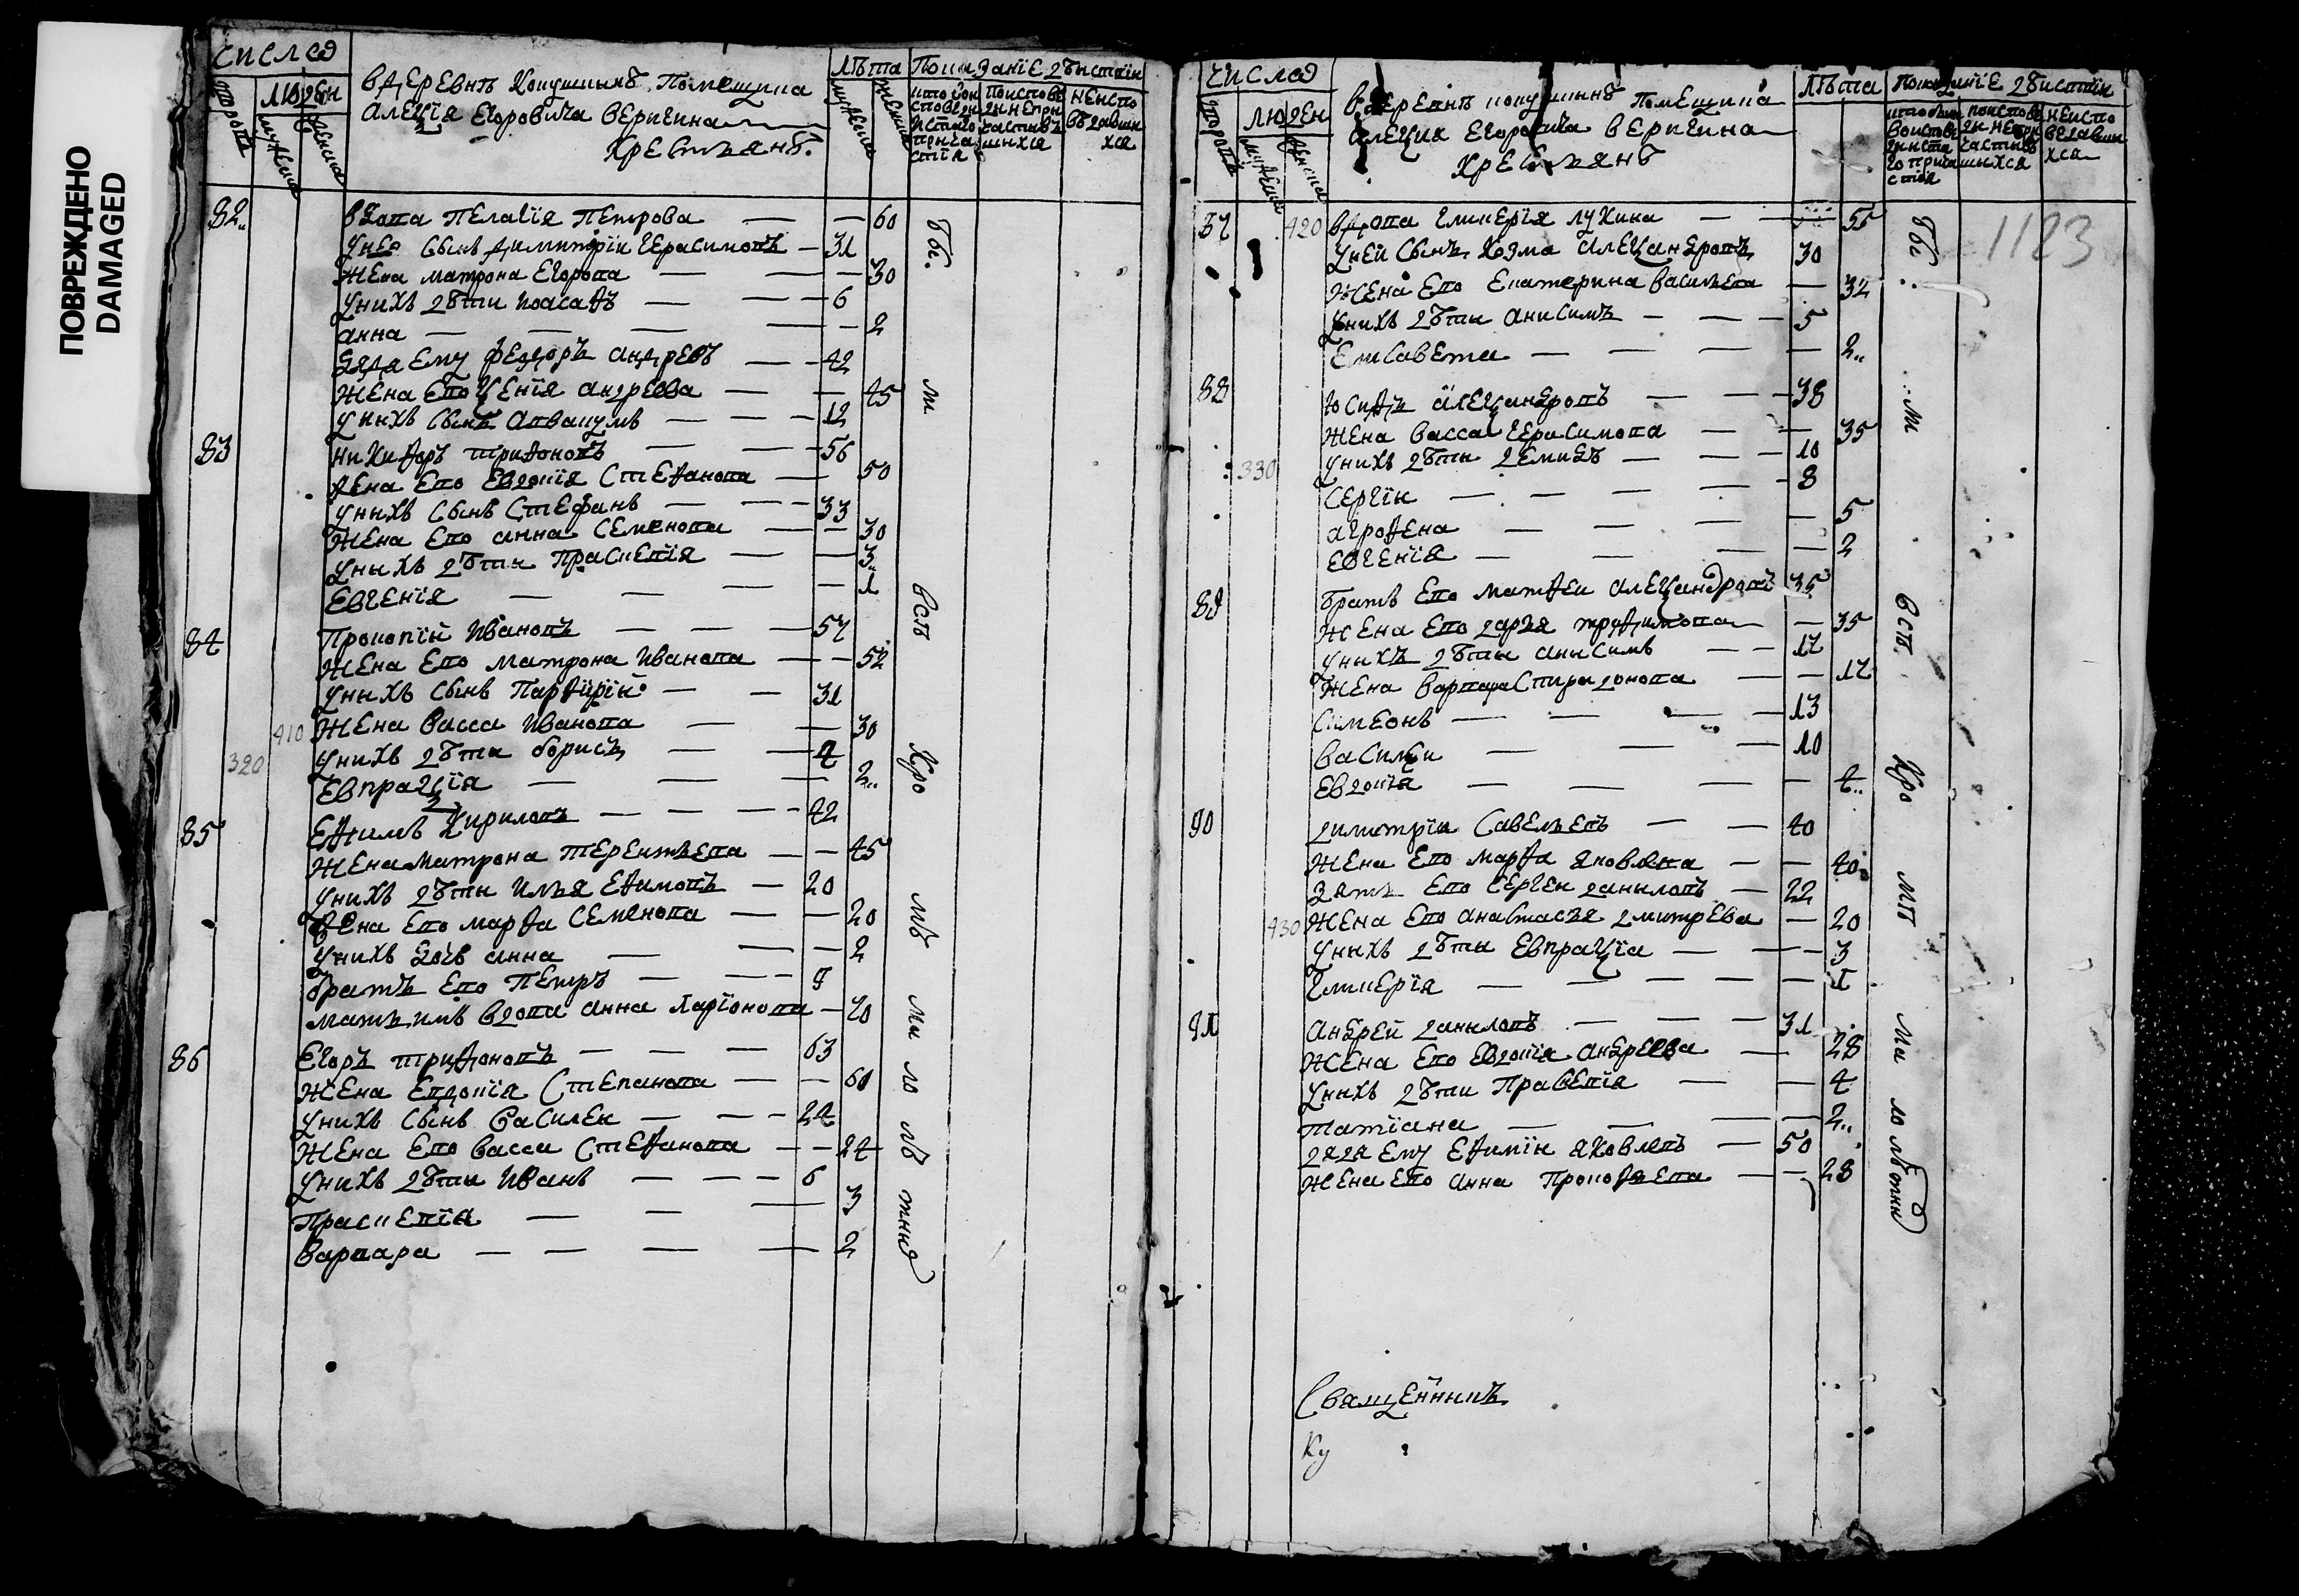 ПОВРЕЖДЕНО
DAMAGED
числа
людей
в деревнѣ Кокушкинѣ помещика
Алеѯѣя Егоровича Веригина
крестьянѣ.
лѣта
Показанїе дѣйствїи
82
вдова Пелагїя Петрова — — 60
у нее сынъ Димитрїи Герасимовъ — 31
жена Матрона Егорова — — 30
у нихъ дѣти Иоасафъ — — 6
Анна — — — — 2
дядя ему Феодоръ Андревъ — 42
жена ево Ѯенїя Андреева — — 45
у нихъ сынъ Аввакумъ — — 12
83
Никифоръ Трифоновъ — — 56
жена ево Евдокїя Стефанова — 50
у нихъ сынъ Стефанъ — — 33
жена ево Анна Семенова — — 30
у нихъ дѣти Прасковїя — — 3
Евгенїя — — — — 1
84
Прокопїй Ивановъ — — — 57
жена ево Матрона Иванова — — 52
у нихъ сынъ Парфирїй — — 31
410 жена Васса Иванова — — 30
320 у нихъ дѣти Борисъ — — 4
Евпраѯїя — — — 2
85
Ефимъ Кириловъ — — — 42
жена Матрона Терентьева — — 45
у нихъ дѣти Илья Ефимовъ — 20
жена ево Марфа Семенова — — 20
у нихъ дочь Анна — — 2
братъ ево Петръ — — — 9
мать имъ вдова Анна Ларїонова — 70
86
Егоръ Трифоновъ — — — 63
жена Евдокїя Степанова — — 60
у нихъ сынъ Василеи — — — 24
жена ево Васса Стефанова — — 24
у нихъ дѣти Иванъ — — — 6
Прасковїя — — — 3
Варвара — — — — 2
бы
м
всѣ
кро
мѣ
ма ло лѣ тнид
числа
людей
в деревнѣ Кокушкинѣ помещика
Алеѯия Егоровича Веригина
крестьянѣ
лѣта
Показанїе дѣистїи
1123
87
420 вдова Гликерїя Лукина — — 55
у ней сынъ Козма Алеѯандровъ 30
жена ево Екатерина Васильева — 32
у нихъ дѣти Анисимъ — — — 5
Елисавета — — — — 2
88
Юсифъ Алеѯандровъ — — — 38
жена Васса Герасимова — — 35
330 у нихъ дѣти Демидъ — — — 10
Сергїи — — — — 8
Агрофена — — — — 5
Евгенїя — — — — 2
89
братъ ево Матфеи Алеѯандровъ 35
жена ево Дарья Трифимова — 35
у нихъ дѣти Анисимъ — — 17
жена Варвара Спиридонова — — 17
Симеонъ — — — — 13
Василѣи — — — 10
Евдокїя — — — — 4
90
Димитрїи Савельевъ — — 40
жена ево Марфа Яковлева — — 40
зять ево Сергеи Даниловъ — 22
430 жена ево Анастасья Дмитрева — 20
у нихъ дѣти Евпраѯїа — — — 3
Гликерїя — — — — — 1
91
Андрей Даниловъ — — — 31
жена ево Евдокїя Андреева — 28
у нихъ дѣти Прасковїя — — 4
Татїана — — — — 2
дядя ему Ефимїи Яковлевъ — 50
жена ево Анна Прокофьева — — 28
бы
м
всѣ
кро
мѣ
ма ло лѣтнид
Священникъ
Ку